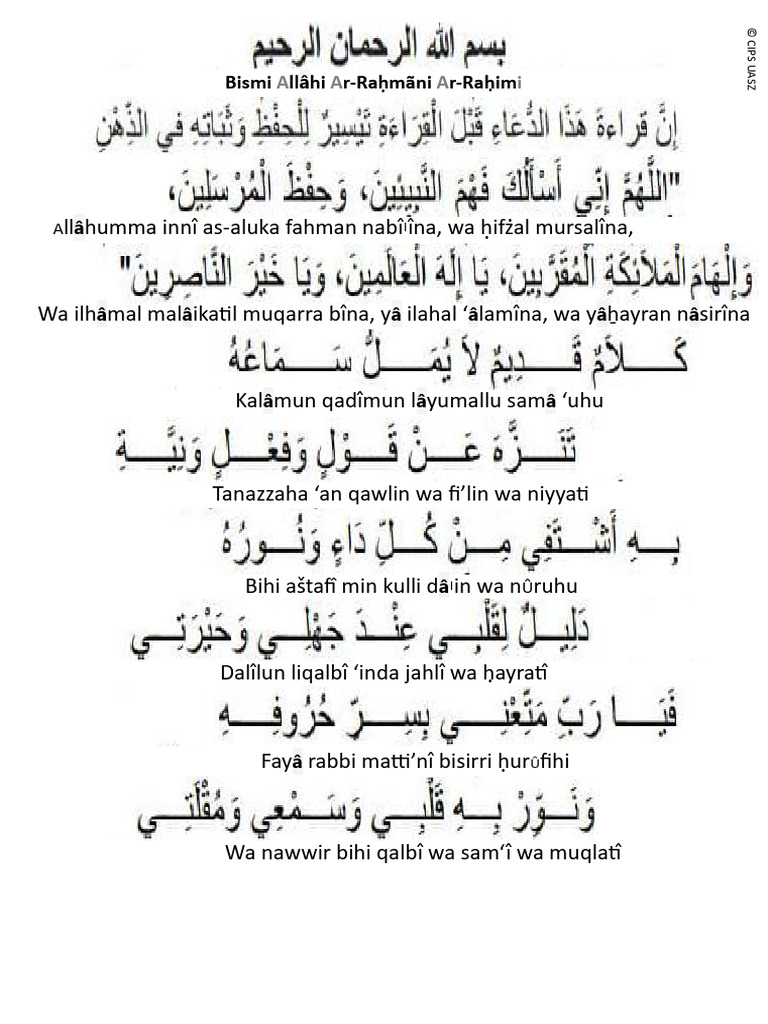 © CIPS UASZ
بسم الله الرحمان الرحيم
Bismi Allâhi Ar-Raḥmãni Ar-Raḥimi
إِنَّ قراءةَ هَذَا الدُّعَاءِ قَبْلَ الْقِرَاءَةِ تَيْسِيرٌ لِلْحِفْظِ وَثَبَاتِهِ في الذِّهْنِ
"اللَّهُمَّ إِنِّي أَسْأَلُكَ فَهْمَ النَّبِيِيْنَ، وَحِفْظَ الْمُرْسَلِينَ،
Allâhumma innî as-aluka fahman nabîˡîna, wa ḥifżal mursalîna,
وَإِلْهَامَ الْمَلاَئِكَةِ الْمُقَرَّبِينَ، يَا إِلَهَ الْعَالَمِينَ، وَيَا خَيْرَ النَّاصِرِينَ"
Wa ilhâmal malâikatil muqarra bîna, yâ ilahal ‘âlamîna, wa yâẖayran nâsirîna
كَـــلاَمٌ قَـــدِيمٌ لاَ يُمَـــلُّ سَـــمَاعُهُ
Kalâmun qadîmun lâyumallu samâ ‘uhu
تَنَـــزَّهَ عَـــنْ قَـــوْلٍ وَفِعْـــلٍ وَنِيَّـــةِ
Tanazzaha ‘an qawlin wa fi’lin wa niyyati
بِـــهِ أَشْـــتَفِي مِـــنْ كُـــلِّ دَاءٍ وَنُـــورُهُ
Bihi aštafî min kulli dâˡin wa nûruhu
دَلِيـــلٌ لِقَلْبِـــي عِنْـــدَ جَهْلِـــي وَحَيْرَتِـــي
Dalîlun liqalbî ‘inda jahlî wa ḥayratî
فَيَـــا رَبِّ مَتِّعْنِـــي بِسِـــرِّ حُرُوفِـــهِ
Fayâ rabbi matti’nî bisirri ḥurûfihi
وَنَـــوِّرْ بِـــهِ قَلْبِـــي وَسَـــمْعِي وَمُقْلَتِـــي
Wa nawwir bihi qalbî wa sam‘î wa muqlatî